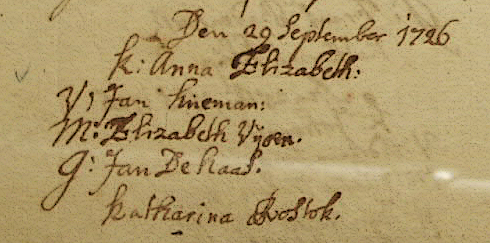 Den 29 September 1726
K: Anna Elizabeth:
V: Jan Kineman:
M: Elizabeth Vijoen.
G: Jan De Kaas.
Katharina Rostok.